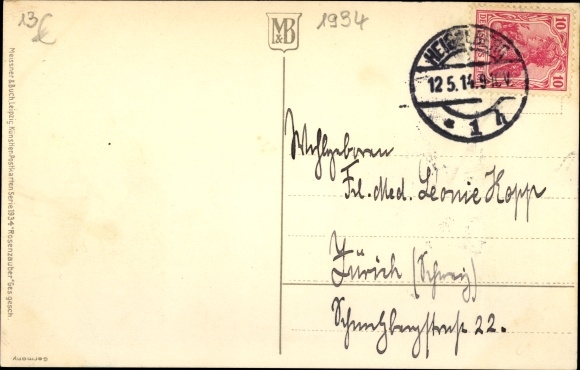 13€
M&B
1934
10
10
HEIDELBERG
12.5.14.9-10V.
* 1 h
Wohlgeboren
Frl. Med. Leonie Kopp
Zürich (Schweiz)
Schmelzbergstraße 22.
Meissner & Buch, Leipzig. Künstler-Postkarten Serie 1934 "Rosenzauber" Ges. gesch.
Germany